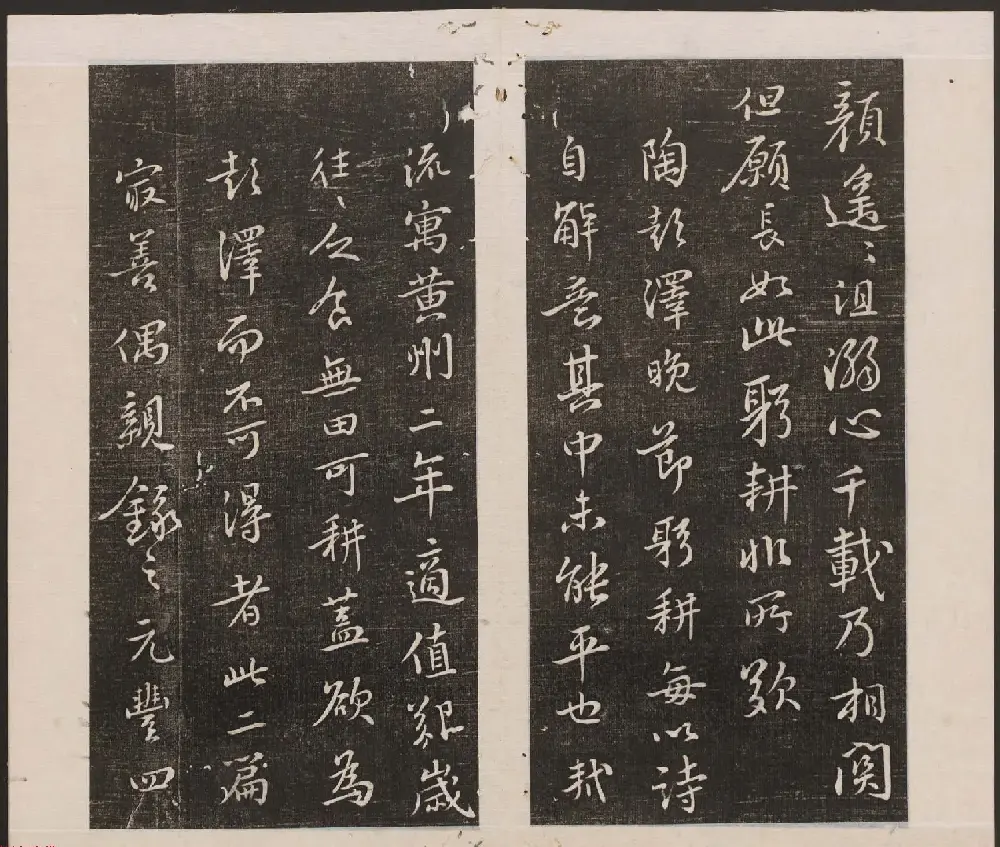 顏遙〻沮溺心千載乃相關
但願長如此躬耕非所歎
陶彭澤晚節躬耕每以詩
自解意其中未能平也軾
流寓黃州二年適值艱歲
往〻乏食無田可耕蓋欲為
彭澤而不可得者此二篇
最善偶親錄之元豐四